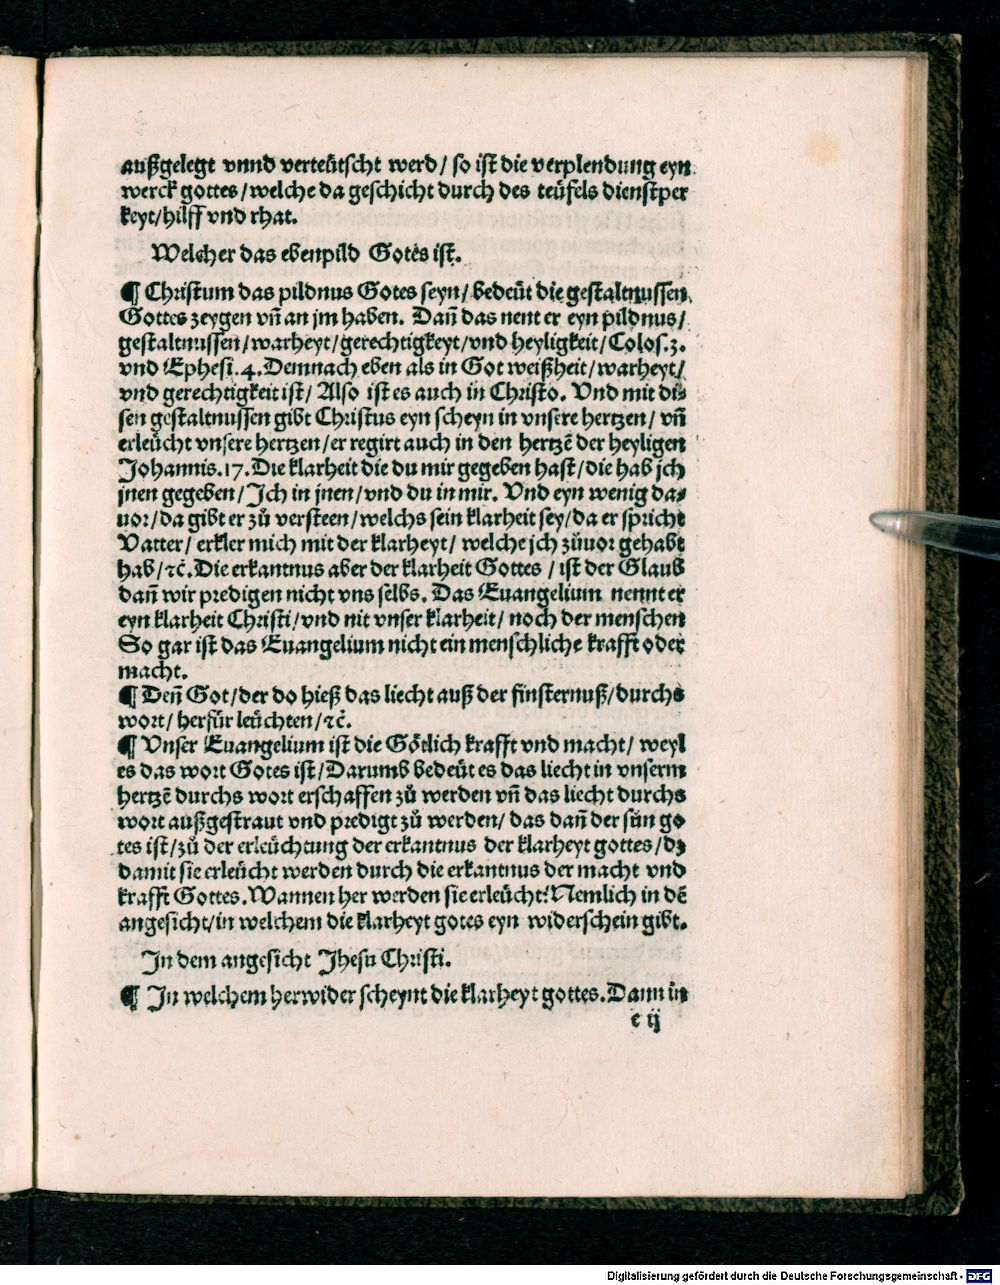 außgelegt vnnd verteütscht werd / so ist die verplendung eyn
werck gottes / welche da geschicht durch des teüfels dienstper
keyt / hilff vnd rhat.
Welcher das ebenpild Gotes ist.
¶ Christum das pildnus Gotes seyn / bedeüt die gestaltnussen
Gottes zeygen vñ an jm haben. Dañ das nent er eyn pildnus /
gestaltnussen / warheyt / gerechtigkeyt / vnd heyligkeit / Colos. 3.
vnd Ephesi. 4. Demnach eben als in Got weißheit / warheyt /
vnd gerechtigkeit ist / Also ist es auch in Christo. Vnd mit di⸗
sen gestaltnussen gibt Christus eyn scheyn in vnsere hertzen / vñ
erleücht vnsere hertzen / er regirt auch in den hertzẽ der heyligen
Johannis. 17. Die klarheit die du mir gegeben hast / die hab jch
jnen gegeben / Jch in jnen / vnd du in mir. Vnd eyn wenig da⸗
uor / da gibt er zů versteen / welchs sein klarheit sey / da er spricht
Vatter / erkler mich mit der klarheyt / welche jch zůuor gehabt
hab / ⁊č. Die erkantnus aber der klarheit Gottes / ist der Glaub
dañ wir predigen nicht vns selbs. Das Euangelium nennt er
eyn klarheit Christi / vnd nit vnser klarheit / noch der menschen
So gar ist das Euangelium nicht ein menschliche krafft oder
macht.
¶ Deñ Got / der do hieß das liecht auß der finsternuß / durchs
wort / herfür leüchten / ⁊č.
¶ Vnser Euangelium ist die Götlich krafft vnd macht / weyl
es das wort Gotes ist / Darumb bedeüt es das liecht in vnserm
hertzẽ durchs wort erschaffen zů werden vñ das liecht durchs
wort außgestraut vnd predigt zů werden / das dañ der sün go
tes ist / zů der erleüchtung der erkantnus der klarheyt gottes / dz
damit sie erleücht werden durch die erkantnus der macht vnd
krafft Gottes. Wannen her werden sie erleücht? Nemlich in dẽ
angesicht / in welchem die klarheyt gotes eyn widerschein gibt.
In dem angesicht Jhesu Christi.
¶ In welchem herwider scheynt die klarheyt gottes. Dann in
e ij
Digitalisierung gefördert durch die Deutsche Forschungsgemeinschaft - DFG